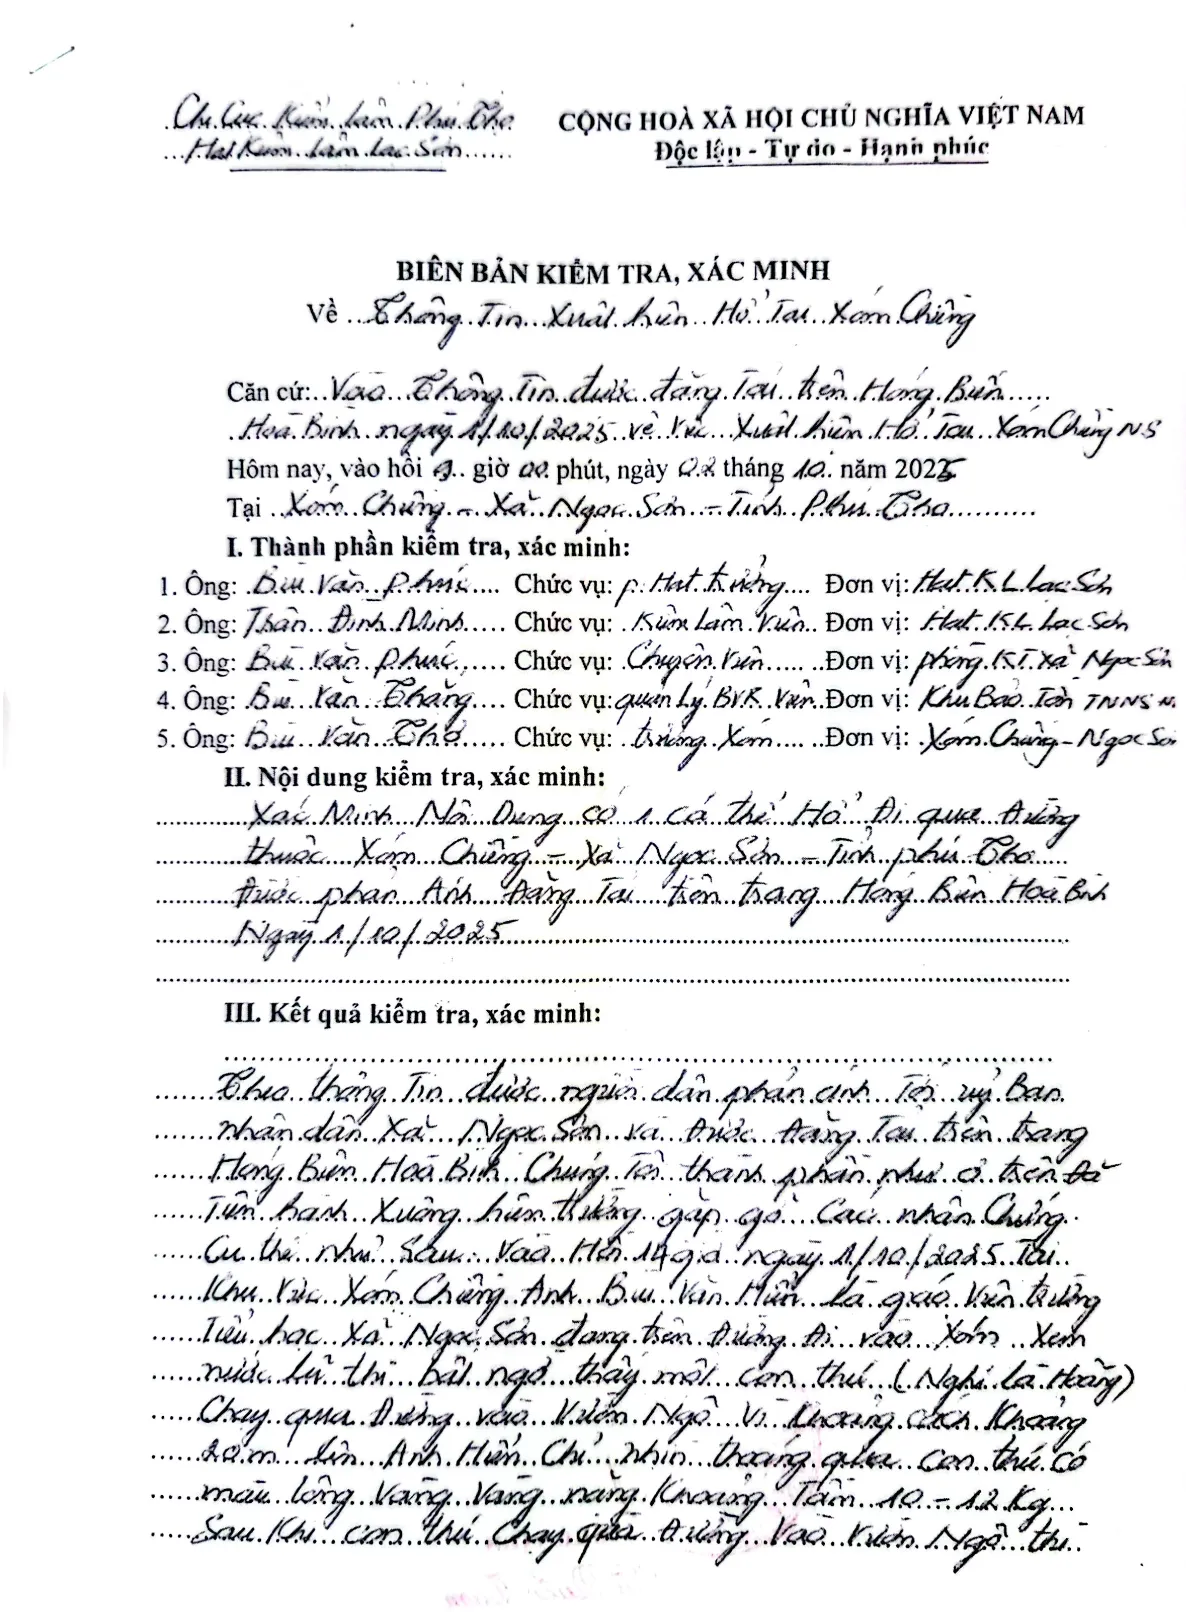 Chi Cục Kiểm Lâm Phú Thọ
Hạt Kiểm Lâm Lạc Sơn
CỘNG HOÀ XÃ HỘI CHỦ NGHĨA VIỆT NAM
Độc lập - Tự do - Hạnh phúc
BIÊN BẢN KIỂM TRA, XÁC MINH
Về Thông Tin Xuất hiện Hổ Tại Xóm Chiềng
Căn cứ: Vào Thông Tin được đăng Tải trên Hóng Biến
Hoà Bình ngày 1/10/2025 về việc Xuất hiện Hổ Tại Xóm Chiềng N.S
Hôm nay, vào hồi 9 giờ 00 phút, ngày 02 tháng 10 năm 2025
Tại Xóm Chiềng - Xã Ngọc Sơn - Tỉnh Phú Thọ
I. Thành phần kiểm tra, xác minh:
1. Ông: Bùi Văn Phúc Chức vụ: P. Hạt trưởng Đơn vị: Hạt K.L Lạc Sơn
2. Ông: Thân Đình Minh Chức vụ: Kiểm Lâm Viên Đơn vị: Hạt KL Lạc Sơn
3. Ông: Bùi Văn Phúc Chức vụ: Chuyên Viên Đơn vị: phòng KT Xã Ngọc Sơn
4. Ông: Bùi Văn Thắng Chức vụ: quản Lý BVR Viên Đơn vị: Khu Bảo Tồn TNNS N.
5. Ông: Bùi Văn Thơ Chức vụ: trưởng Xóm Đơn vị: Xóm Chiềng - Ngọc Sơn
II. Nội dung kiểm tra, xác minh:
Xác Minh Nội Dung có 1 cá thể Hổ Đi qua Đường
thuộc Xóm Chiềng - Xã Ngọc Sơn - Tỉnh phú Thọ
Được phản Ánh Đăng Tải trên trang Hóng Biến Hoà Bình
Ngày 1/10/2025
III. Kết quả kiểm tra, xác minh:
Theo thông Tin được người dân phản ánh Tới uỷ Ban
nhân dân Xã Ngọc Sơn và Được Đăng Tải trên trang
Hóng Biến Hoà Bình Chúng Tôi thành phần như ở trên Đã
Tiến hành Xuống hiện trường gặp gỡ Các nhân Chứng
Cụ thể như Sau: Vào Hồi 14 giờ ngày 1/10/2025 Tại
Khu Vực Xóm Chiềng Anh Bùi Văn Hiển là giáo Viên trường
Tiểu học Xã Ngọc Sơn đang trên Đường Đi vào Xóm Xem
nước lũ thì bất ngờ thấy một con thú (Nghi là Hoẵng)
Chạy qua Đường vào Vườn Ngô Vì Khoảng cách Khoảng
20m lên Anh Hiển Chỉ nhìn thoáng qua con thú có
màu lông vàng vàng nặng Khoảng Tầm 10 - 12 Kg
Sau Khi con thú Chạy qua Đường Vào Vườn Ngô thì